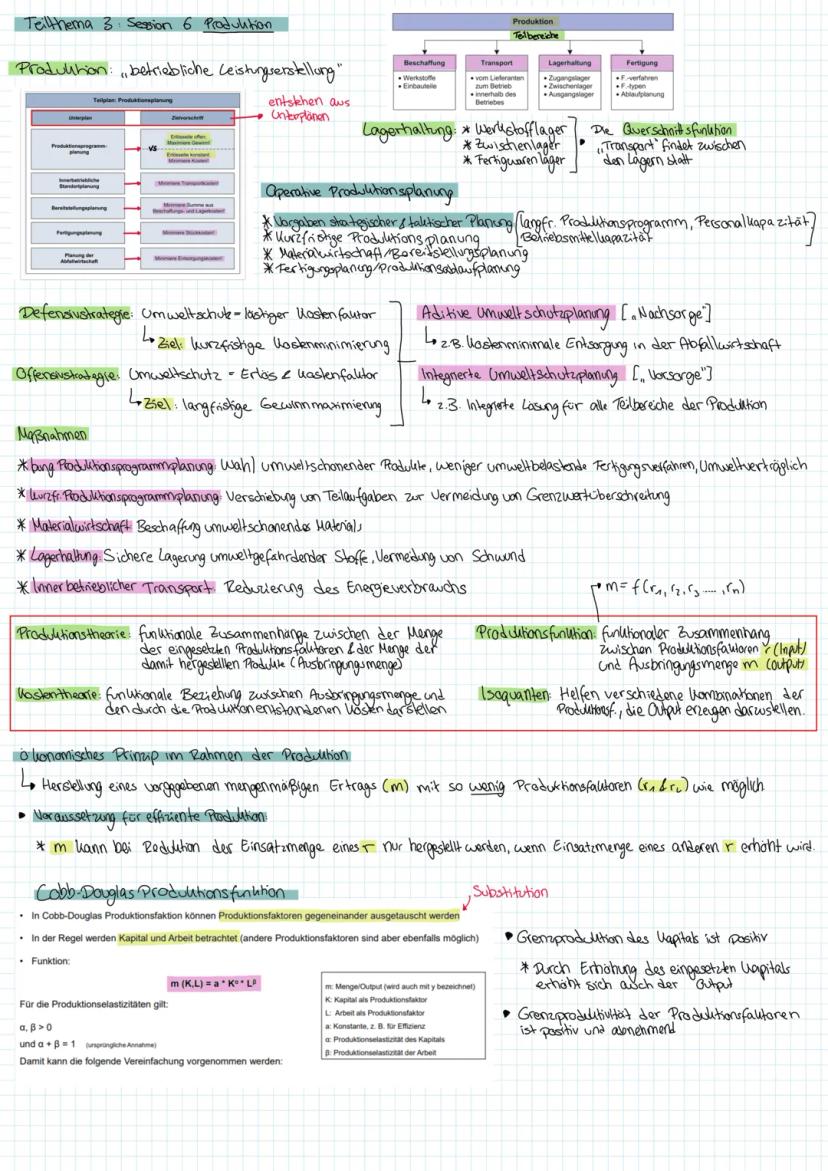 Teilthema 3: Session 6 Produktion
Produktion: „betriebliche Leistungserstellung"
Produktion
Teilbereiche
Beschaffung
• Werkstoffe
• Einbauteile
Transport
• vom Lieferanten
zum Betrieb
• innerhalb des
Betriebes
Lagerhaltung
• Zugangslager
• Zwischenlager
• Ausgangslager
Fertigung
• F.-verfahren
• F.-typen
• Ablaufplanung
Teilplan: Produktionsplanung
Unterplan
Zielvorschrift
Produktionsprogramm-
planung
Erlösseite offen:
Maximiere Gewinn!
vs
Erlösseite konstant:
Minimiere Kosten!
Innerbetriebliche
Standortplanung
Minimiere Transportkosten!
Bereitstellungsplanung
Minimiere Summe aus
Beschaffungs- und Lagerkosten!
Fertigungsplanung
Minimiere Stückkosten!
Planung der
Abfallwirtschaft
Minimiere Entsorgungskosten!
entstehen aus
Unterplänen
Lagerhaltung: * Werkstofflager
* Zwischenlager
* Fertigwarenlager
• Die Querschnittsfunktion
„Transport" findet zwischen
den Lagern statt
Operative Produktionsplanung
* Vorgaben strategischer & taktischer Planung [langfr. Produktionsprogramm, Personalkapazität,
Betriebsmittelkapazität]
* Kurzfristige Produktionsplanung
* Materialwirtschaft/Bereitstellungsplanung
* Fertigungsplanung/Produktionsablaufplanung
Defensivstrategie: Umweltschutz = lästiger Kostenfaktor
↳ Ziel: kurzfristige Kostenminimierung
Offensivstrategie: Umweltschutz = Erlös & Kostenfaktor
↳ Ziel: langfristige Gewinnmaximierung
Aditive Umweltschutzplanung [„Nachsorge"]
↳ z.B. Kostenminimale Entsorgung in der Abfallwirtschaft
Integrierte Umweltschutzplanung [„Vorsorge"]
↳ z.B. Integrierte Lösung für alle Teilbereiche der Produktion
Maßnahmen
* lang Produktionsprogrammplanung: Wahl umweltschonender Produkte, weniger umweltbelastende Fertigungsverfahren, Umweltverträglich
* kurzfr. Produktionsprogrammplanung: Verschiebung von Teilaufgaben zur Vermeidung von Grenzwertüberschreitung
* Materialwirtschaft: Beschaffung umweltschonendes Materials
* Lagerhaltung: Sichere Lagerung umweltgefährdender Stoffe, Vermeidung von Schwund
* Innerbetrieblicher Transport: Reduzierung des Energieverbrauchs
m = f(r₁, r₂, r₃ ....., rₙ)
Produktionstheorie: funktionale Zusammenhänge zwischen der Menge
der eingesetzten Produktionsfaktoren & der Menge der
damit hergestellten Produkte (Ausbringungsmenge)
Kostentheorie: funktionale Beziehung zwischen Ausbringungsmenge und
den durch die Produktion entstandenen Kosten darstellen
Produktionsfunktion: funktionaler Zusammenhang
zwischen Produktionsfaktoren r (Input)
und Ausbringungsmenge m (Output)
Isoquanten: Helfen verschiedene Kombinationen der
Produktionsf., die Output erzeugen darzustellen.
ökonomisches Prinzip im Rahmen der Produktion
↳ Herstellung eines vorgegebenen mengenmäßigen Ertrags (m) mit so wenig Produktionsfaktoren (r₁ & r₂) wie möglich
• Voraussetzung für effiziente Produktion:
* m kann bei Reduktion der Einsatzmenge eines r nur hergestellt werden, wenn Einsatzmenge eines anderen r erhöht wird.
Cobb-Douglas Produktionsfunktion
Substitution
• In Cobb-Douglas Produktionsfaktion können Produktionsfaktoren gegeneinander ausgetauscht werden
• In der Regel werden Kapital und Arbeit betrachtet (andere Produktionsfaktoren sind aber ebenfalls möglich)
• Funktion:
m (K,L) = a * Kᵅ * Lᵝ
Für die Produktionselastizitäten gilt:
α, β > 0
und α + β = 1 (ursprüngliche Annahme)
Damit kann die folgende Vereinfachung vorgenommen werden:
m: Menge/Output (wird auch mit y bezeichnet)
K: Kapital als Produktionsfaktor
L: Arbeit als Produktionsfaktor
a: Konstante, z. B. für Effizienz
α: Produktionselastizität des Kapitals
β: Produktionselastizität der Arbeit
• Grenzproduktion des Kapitals ist positiv
* Durch Erhöhung des eingesetzten Kapitals
erhöht sich auch der Output
• Grenzproduktivität der Produktionsfaktoren
ist positiv und abnehmend